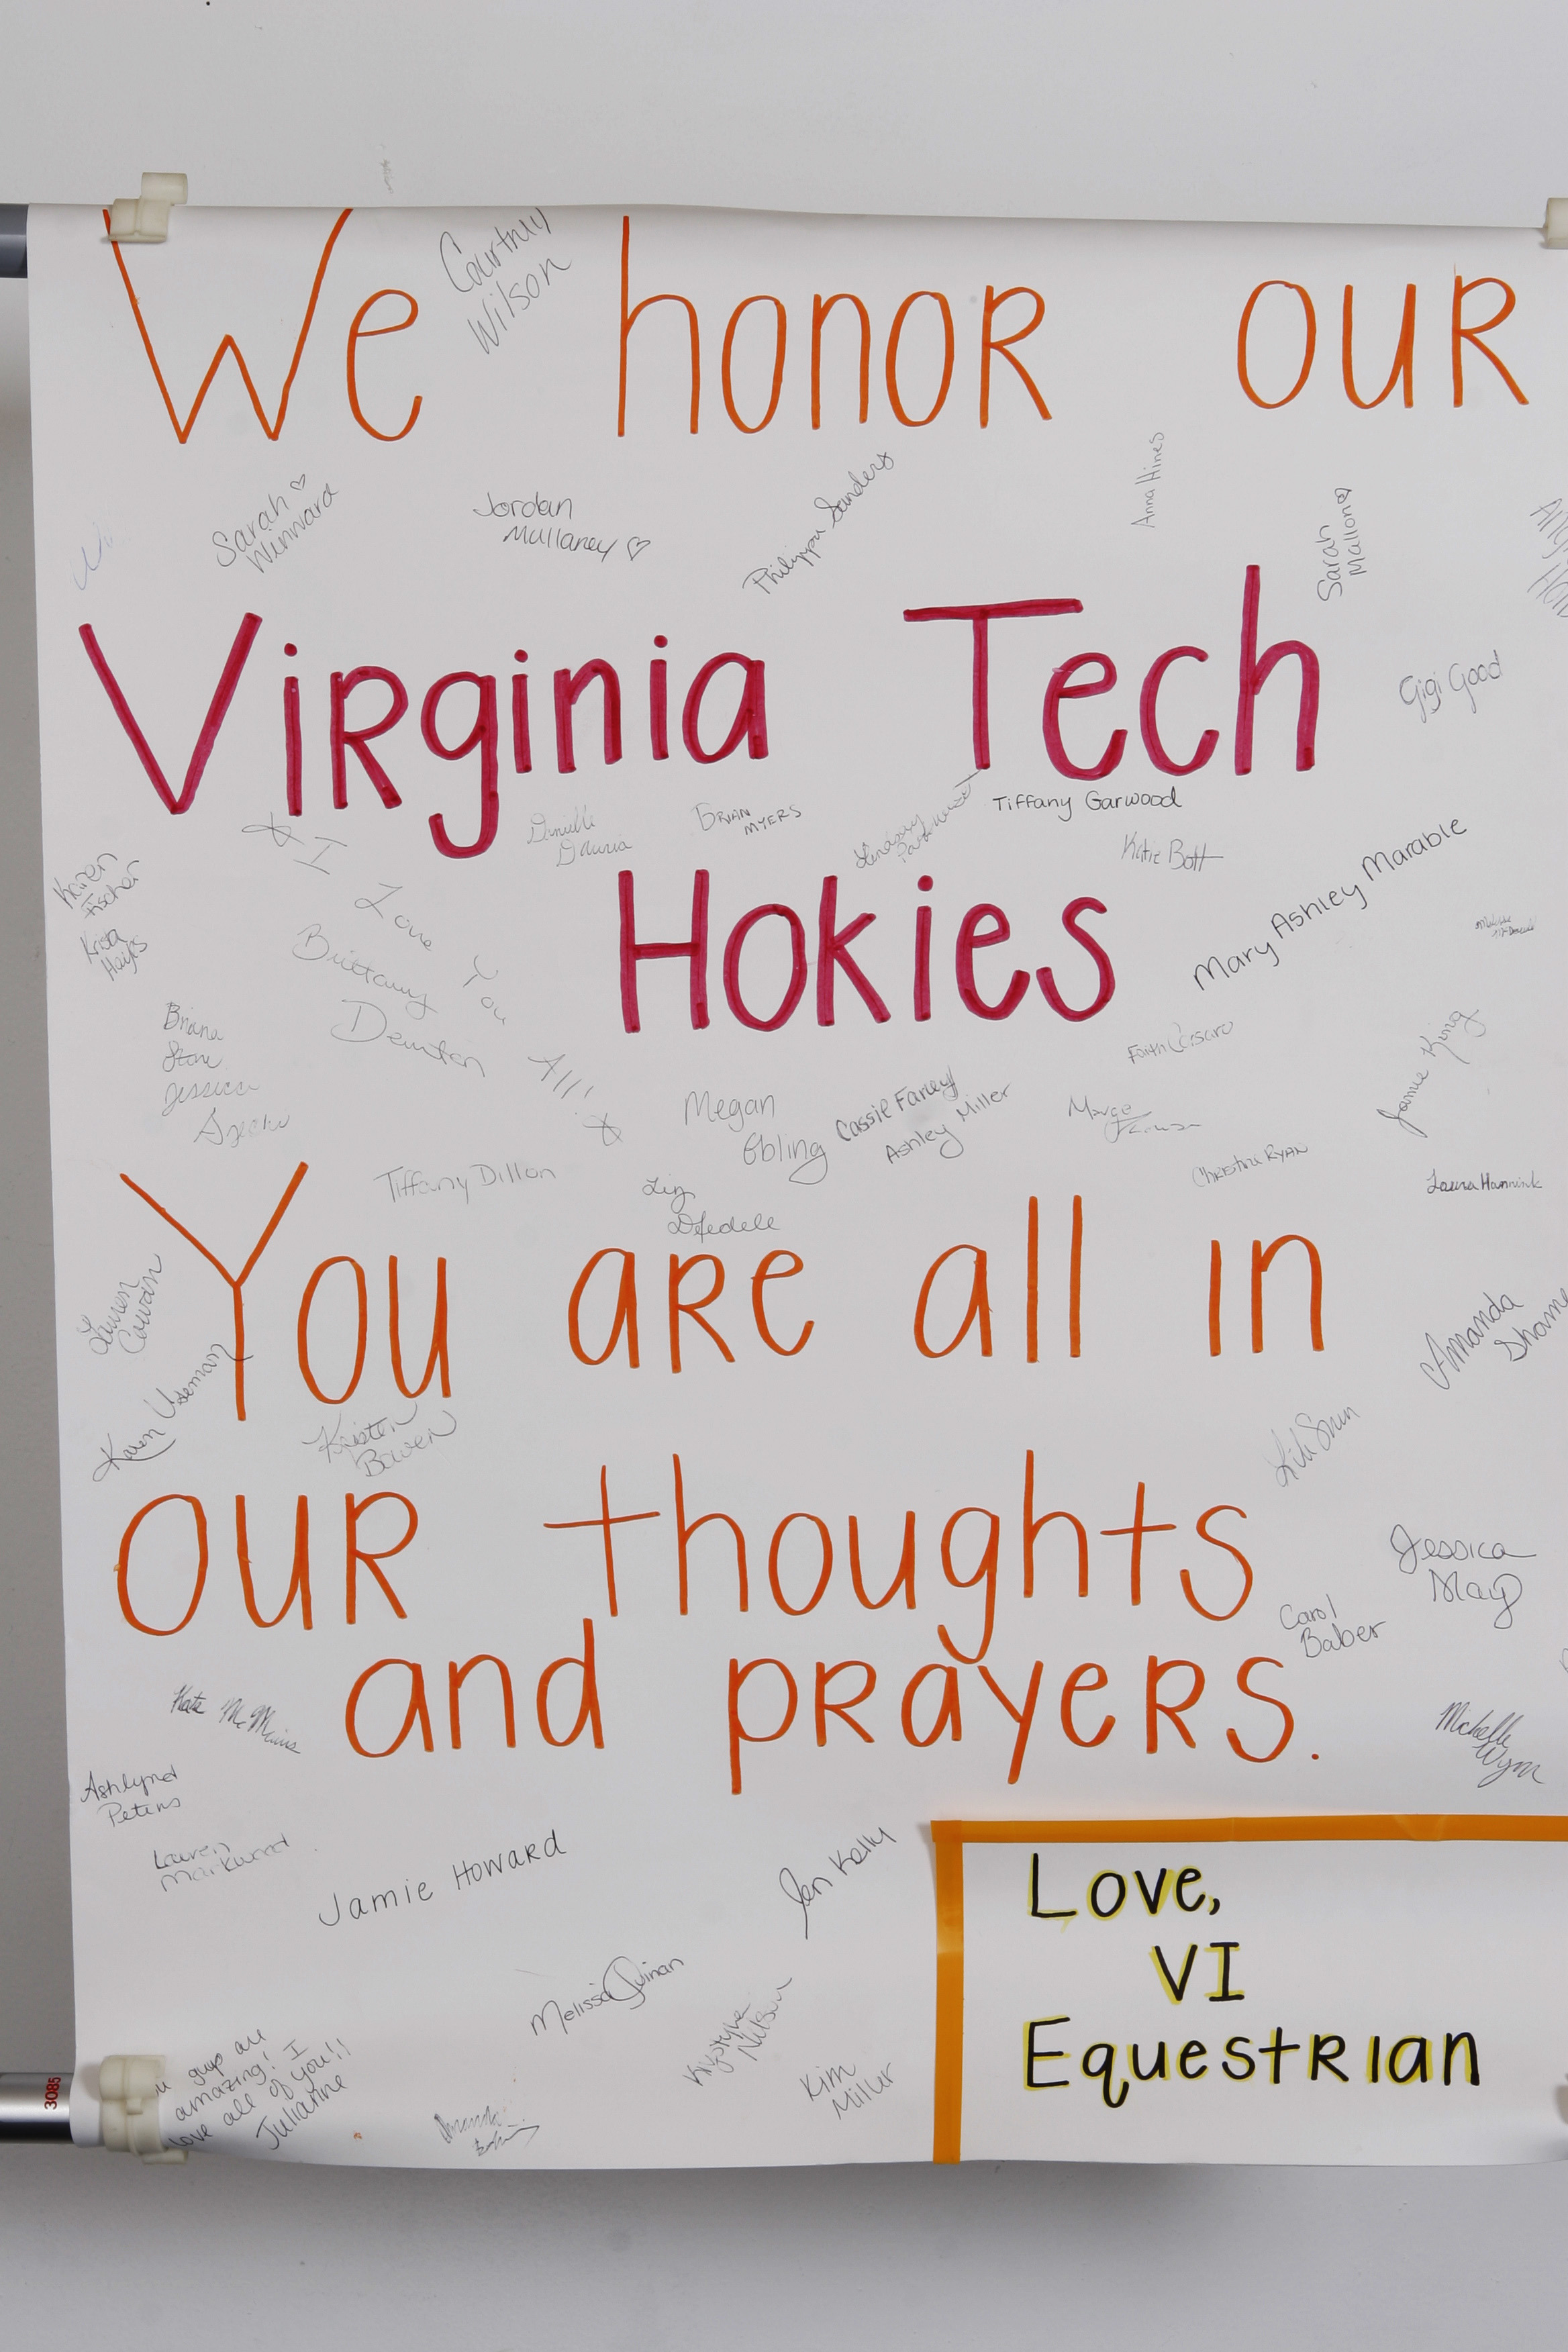 We honor our
Courtney
Wilson
Sarah
Winward
Jordan
Mullaney
Philippa Sanders
Anna Hines
Sarah
Mallon
Virginia Tech
Gigi Good
Danielle
Dauria
Brian
Myers
Lindsay
Tiffany Garwood
Katie Bott
Karen
Fischer
Krista
Hayes
I Love You All!
Brittany
Hokies
Mary Ashley Marable
Briana
Stone
Jessica
Megan
Ebling
Cassie Farley
Ashley Miller
Faith Cesaro
Marge
Joanne King
Christine Ryan
Laura Hannink
Tiffany Dillon
Liz
Defedele
You are all in
Lauren
Cowan
Karen Useman
Kristen
Bowen
Amanda
our thoughts
Jessica
May
Carol
Baber
and prayers.
Kate McMains
Michelle
Wynn
Ashlynd
Peters
Lauren
Markwood
Jamie Howard
Jen Kelly
Love,
VI
Equestrian
Melissa Quinan
Krystyna
Nelson
Kim
Miller
guys are
amazing! I
love all of you!!
Julianne
Amanda
3085